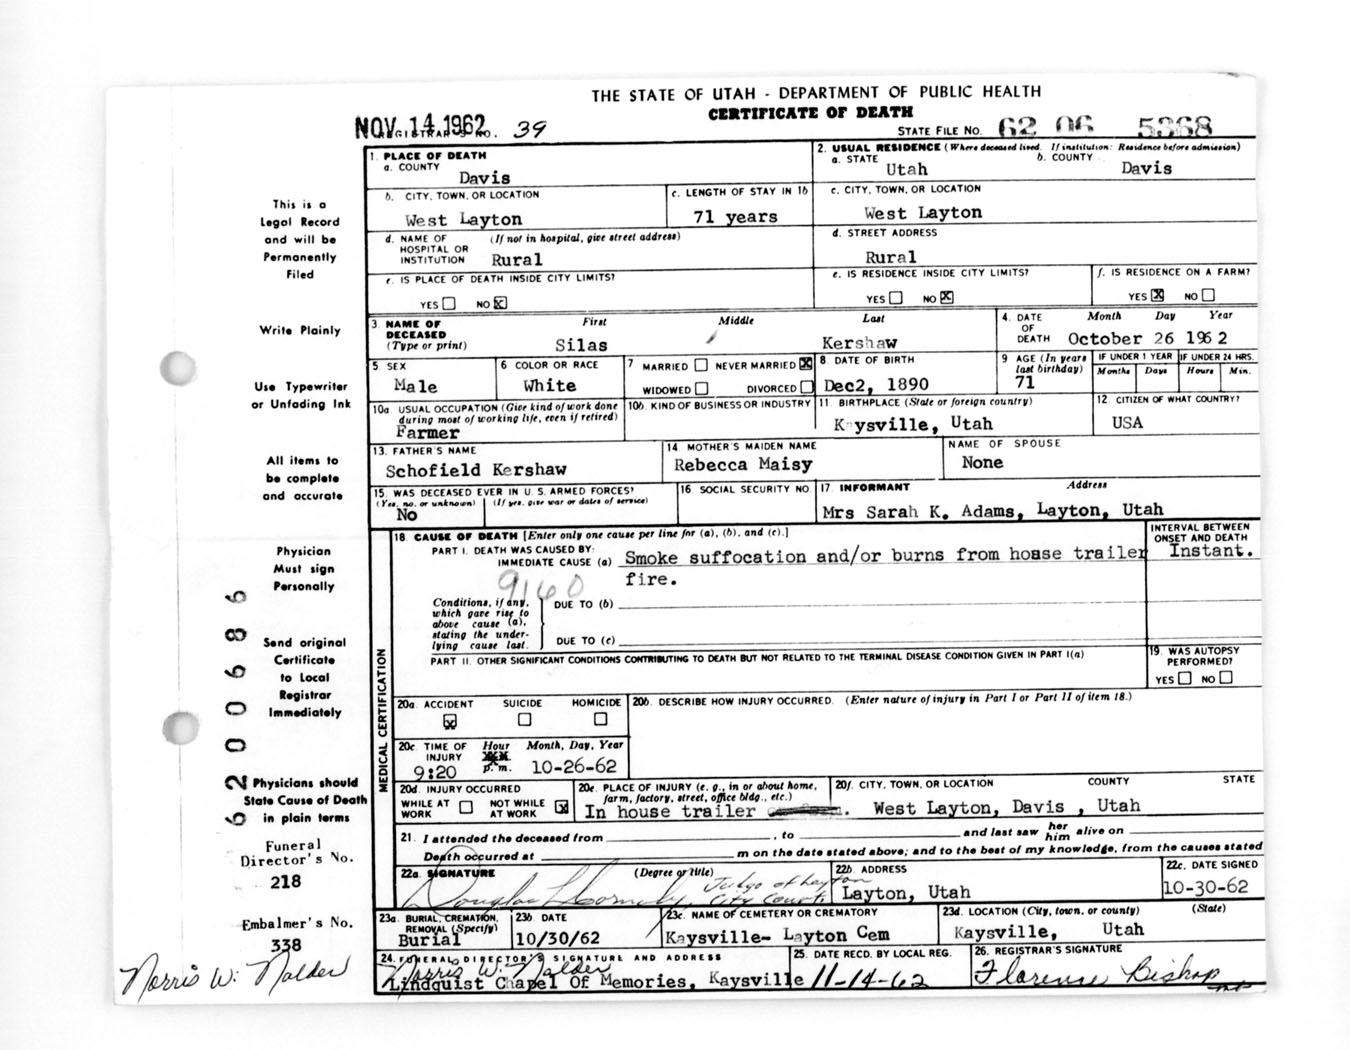 THE STATE OF UTAH - DEPARTMENT OF PUBLIC HEALTH
CERTIFICATE OF DEATH
NOV 14 1962
REGISTRAR'S NO. 39
STATE FILE NO. 62 06 5368
This is a
Legal Record
and will be
Permanently
Filed
Write Plainly
Use Typewriter
or Unfading Ink
All items to
be complete
and accurate
Physician
Must sign
Personally
Send original
Certificate
to Local
Registrar
Immediately
Physicians should
State Cause of Death
in plain terms
Funeral
Director's No.
218
Embalmer's No.
338
Norris W. Nalder
6200686
1. PLACE OF DEATH
a. COUNTY
Davis
2. USUAL RESIDENCE (Where deceased lived. If institution: Residence before admission)
a. STATE Utah
b. COUNTY Davis
b. CITY, TOWN, OR LOCATION
West Layton
c. LENGTH OF STAY IN 1b
71 years
c. CITY, TOWN, OR LOCATION
West Layton
d. NAME OF HOSPITAL OR INSTITUTION (If not in hospital, give street address)
Rural
d. STREET ADDRESS
Rural
e. IS PLACE OF DEATH INSIDE CITY LIMITS?
YES NO X
e. IS RESIDENCE INSIDE CITY LIMITS?
YES NO X
f. IS RESIDENCE ON A FARM?
YES X NO
3. NAME OF DECEASED (Type or print)
First Middle Last
Silas Kershaw
4. DATE OF DEATH Month Day Year
October 26 1962
5. SEX
Male
6 COLOR OR RACE
White
7 MARRIED NEVER MARRIED X
WIDOWED DIVORCED
8 DATE OF BIRTH
Dec2, 1890
9 AGE (In years last birthday)
71
IF UNDER 1 YEAR
Months Days
IF UNDER 24 HRS.
Hours Min.
10a. USUAL OCCUPATION (Give kind of work done during most of working life, even if retired)
Farmer
10b. KIND OF BUSINESS OR INDUSTRY
11. BIRTHPLACE (State or foreign country)
Kaysville, Utah
12. CITIZEN OF WHAT COUNTRY?
USA
13. FATHER'S NAME
Schofield Kershaw
14. MOTHER'S MAIDEN NAME
Rebecca Maisy
NAME OF SPOUSE
None
15. WAS DECEASED EVER IN U. S. ARMED FORCES?
(Yes, no, or unknown) (If yes, give war or dates of service)
No
16. SOCIAL SECURITY NO.
17. INFORMANT Address
Mrs Sarah K. Adams, Layton, Utah
MEDICAL CERTIFICATION
18. CAUSE OF DEATH [Enter only one cause per line for (a), (b), and (c).]
PART I. DEATH WAS CAUSED BY:
IMMEDIATE CAUSE (a) Smoke suffocation and/or burns from house trailer
fire.
9160
INTERVAL BETWEEN
ONSET AND DEATH
Instant.
Conditions, if any,
which gave rise to
above cause (a),
stating the under-
lying cause last.
DUE TO (b)
DUE TO (c)
PART II. OTHER SIGNIFICANT CONDITIONS CONTRIBUTING TO DEATH BUT NOT RELATED TO THE TERMINAL DISEASE CONDITION GIVEN IN PART I(a)
19. WAS AUTOPSY
PERFORMED?
YES NO
20a. ACCIDENT SUICIDE HOMICIDE
X
20b. DESCRIBE HOW INJURY OCCURRED. (Enter nature of injury in Part I or Part II of item 18.)
20c. TIME OF INJURY Hour Month, Day, Year
9:20 p.m. 10-26-62
20d. INJURY OCCURRED
WHILE AT WORK NOT WHILE AT WORK X
20e. PLACE OF INJURY (e. g., in or about home, farm, factory, street, office bldg., etc.)
In house trailer
20f. CITY, TOWN, OR LOCATION COUNTY STATE
West Layton, Davis , Utah
21. I attended the deceased from , to and last saw her him alive on
Death occurred at m on the date stated above; and to the best of my knowledge, from the causes stated
22a. SIGNATURE (Degree or title)
Judge of Layton
City Court
22b. ADDRESS
Layton, Utah
22c. DATE SIGNED
10-30-62
23a. BURIAL, CREMATION, REMOVAL (Specify)
Burial
23b. DATE
10/30/62
23c. NAME OF CEMETERY OR CREMATORY
Kaysville- Layton Cem
23d. LOCATION (City, town, or county) (State)
Kaysville, Utah
24. FUNERAL DIRECTOR'S SIGNATURE AND ADDRESS
Norris W. Nalder
Lindquist Chapel Of Memories, Kaysville
25. DATE RECD. BY LOCAL REG.
11-14-62
26. REGISTRAR'S SIGNATURE
Florence Bishop